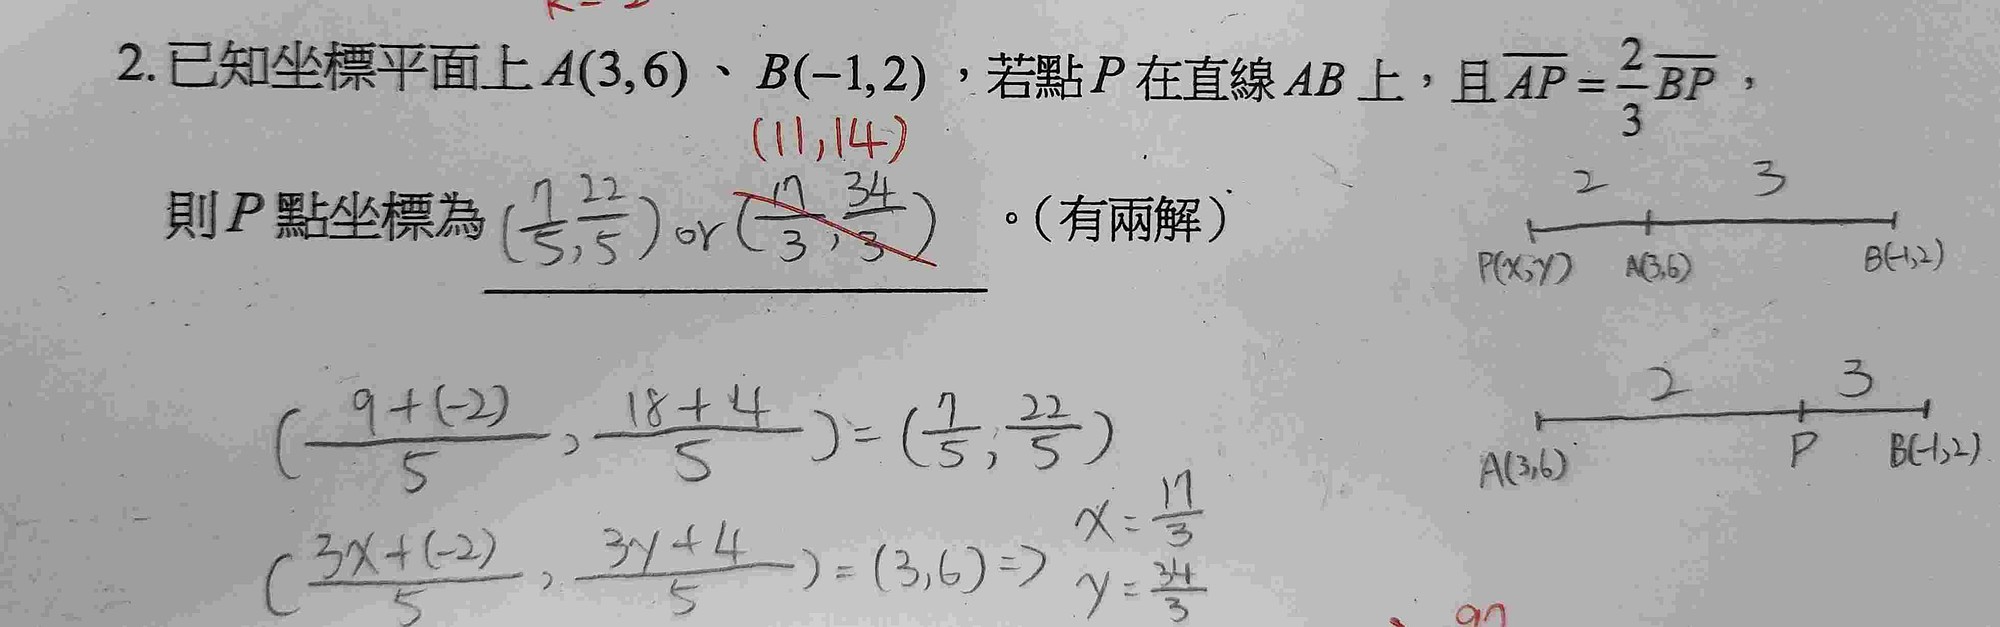 2. 已知坐標平面上 A(3,6) 、 B(−1,2) ,若點 P 在直線 AB 上,且 \overline{AP} = \frac{2}{3} \overline{BP} ,
(11,14)
則 P 點坐標為 (\frac{7}{5}, \frac{22}{5}) or (\frac{17}{3}, \frac{34}{3}) 。(有兩解)
2 3
P(x,y) A(3,6) B(-1,2)
2 3
A(3,6) P B(-1,2)
(\frac{9+(-2)}{5}, \frac{18+4}{5}) = (\frac{7}{5}, \frac{22}{5})
(\frac{3x+(-2)}{5}, \frac{3y+4}{5}) = (3,6) => x = \frac{17}{3}
y = \frac{34}{3}